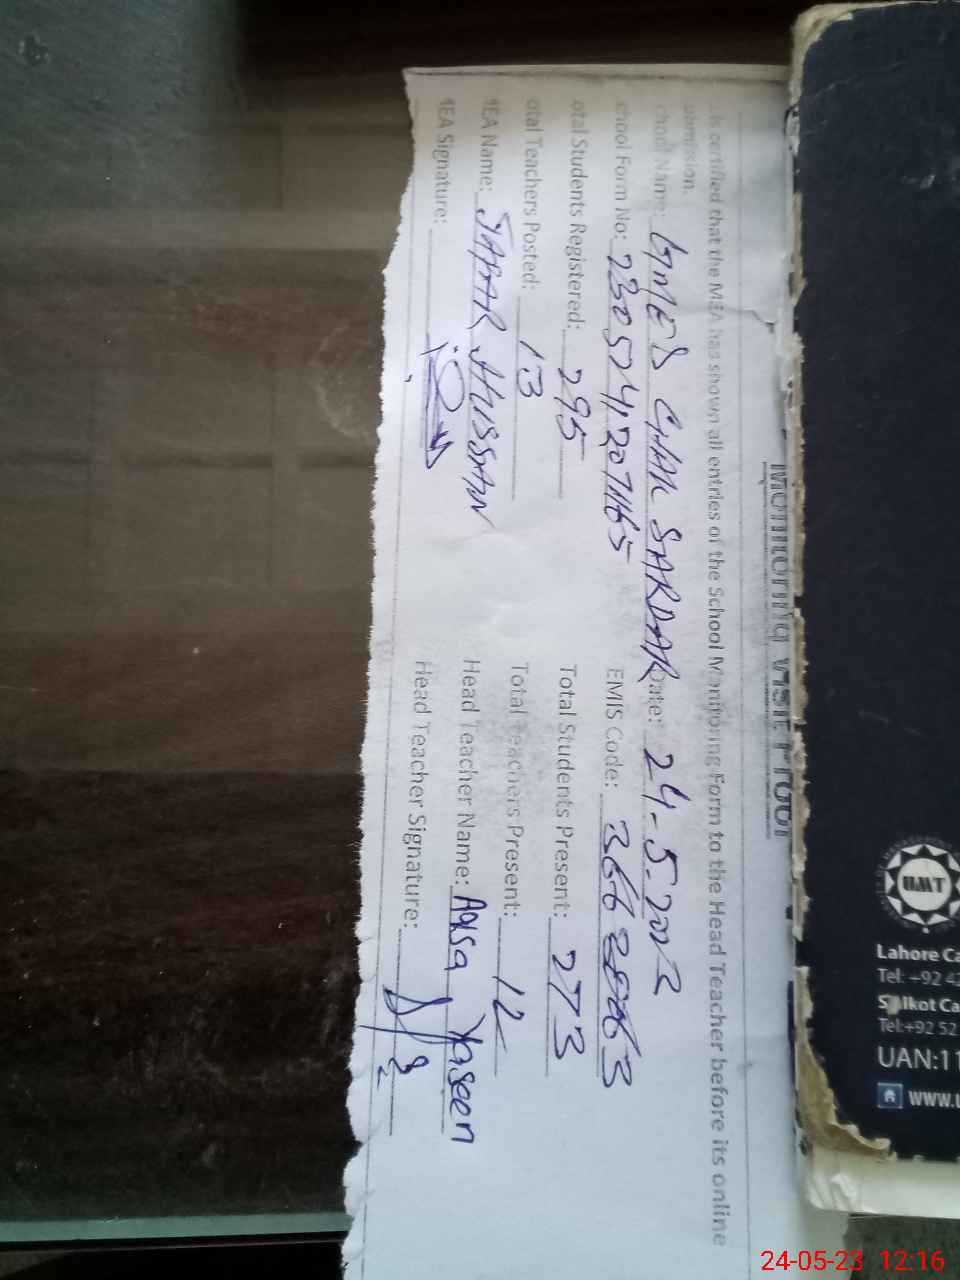 Monitoring Visit Tool
is certified that the MEA has shown all entries of the School Monitoring Form to the Head Teacher before its online
submission.
chool Name: GMES CHAK SARDAR Date: 24-5-202
chool Form No: EMIS Code:
otal Students Registered: 295 Total Students Present: 273
otal Teachers Posted: 13 Total Teachers Present: 12
MEA Name: JAFAR HUSSAIN Head Teacher Name: Aqsa Yaseen
MEA Signature: Head Teacher Signature:
UMT
Lahore Ca
Tel: +92 42
Sialkot Ca
Tel:+92 52
UAN:11
www.u
24-05-23 12:16